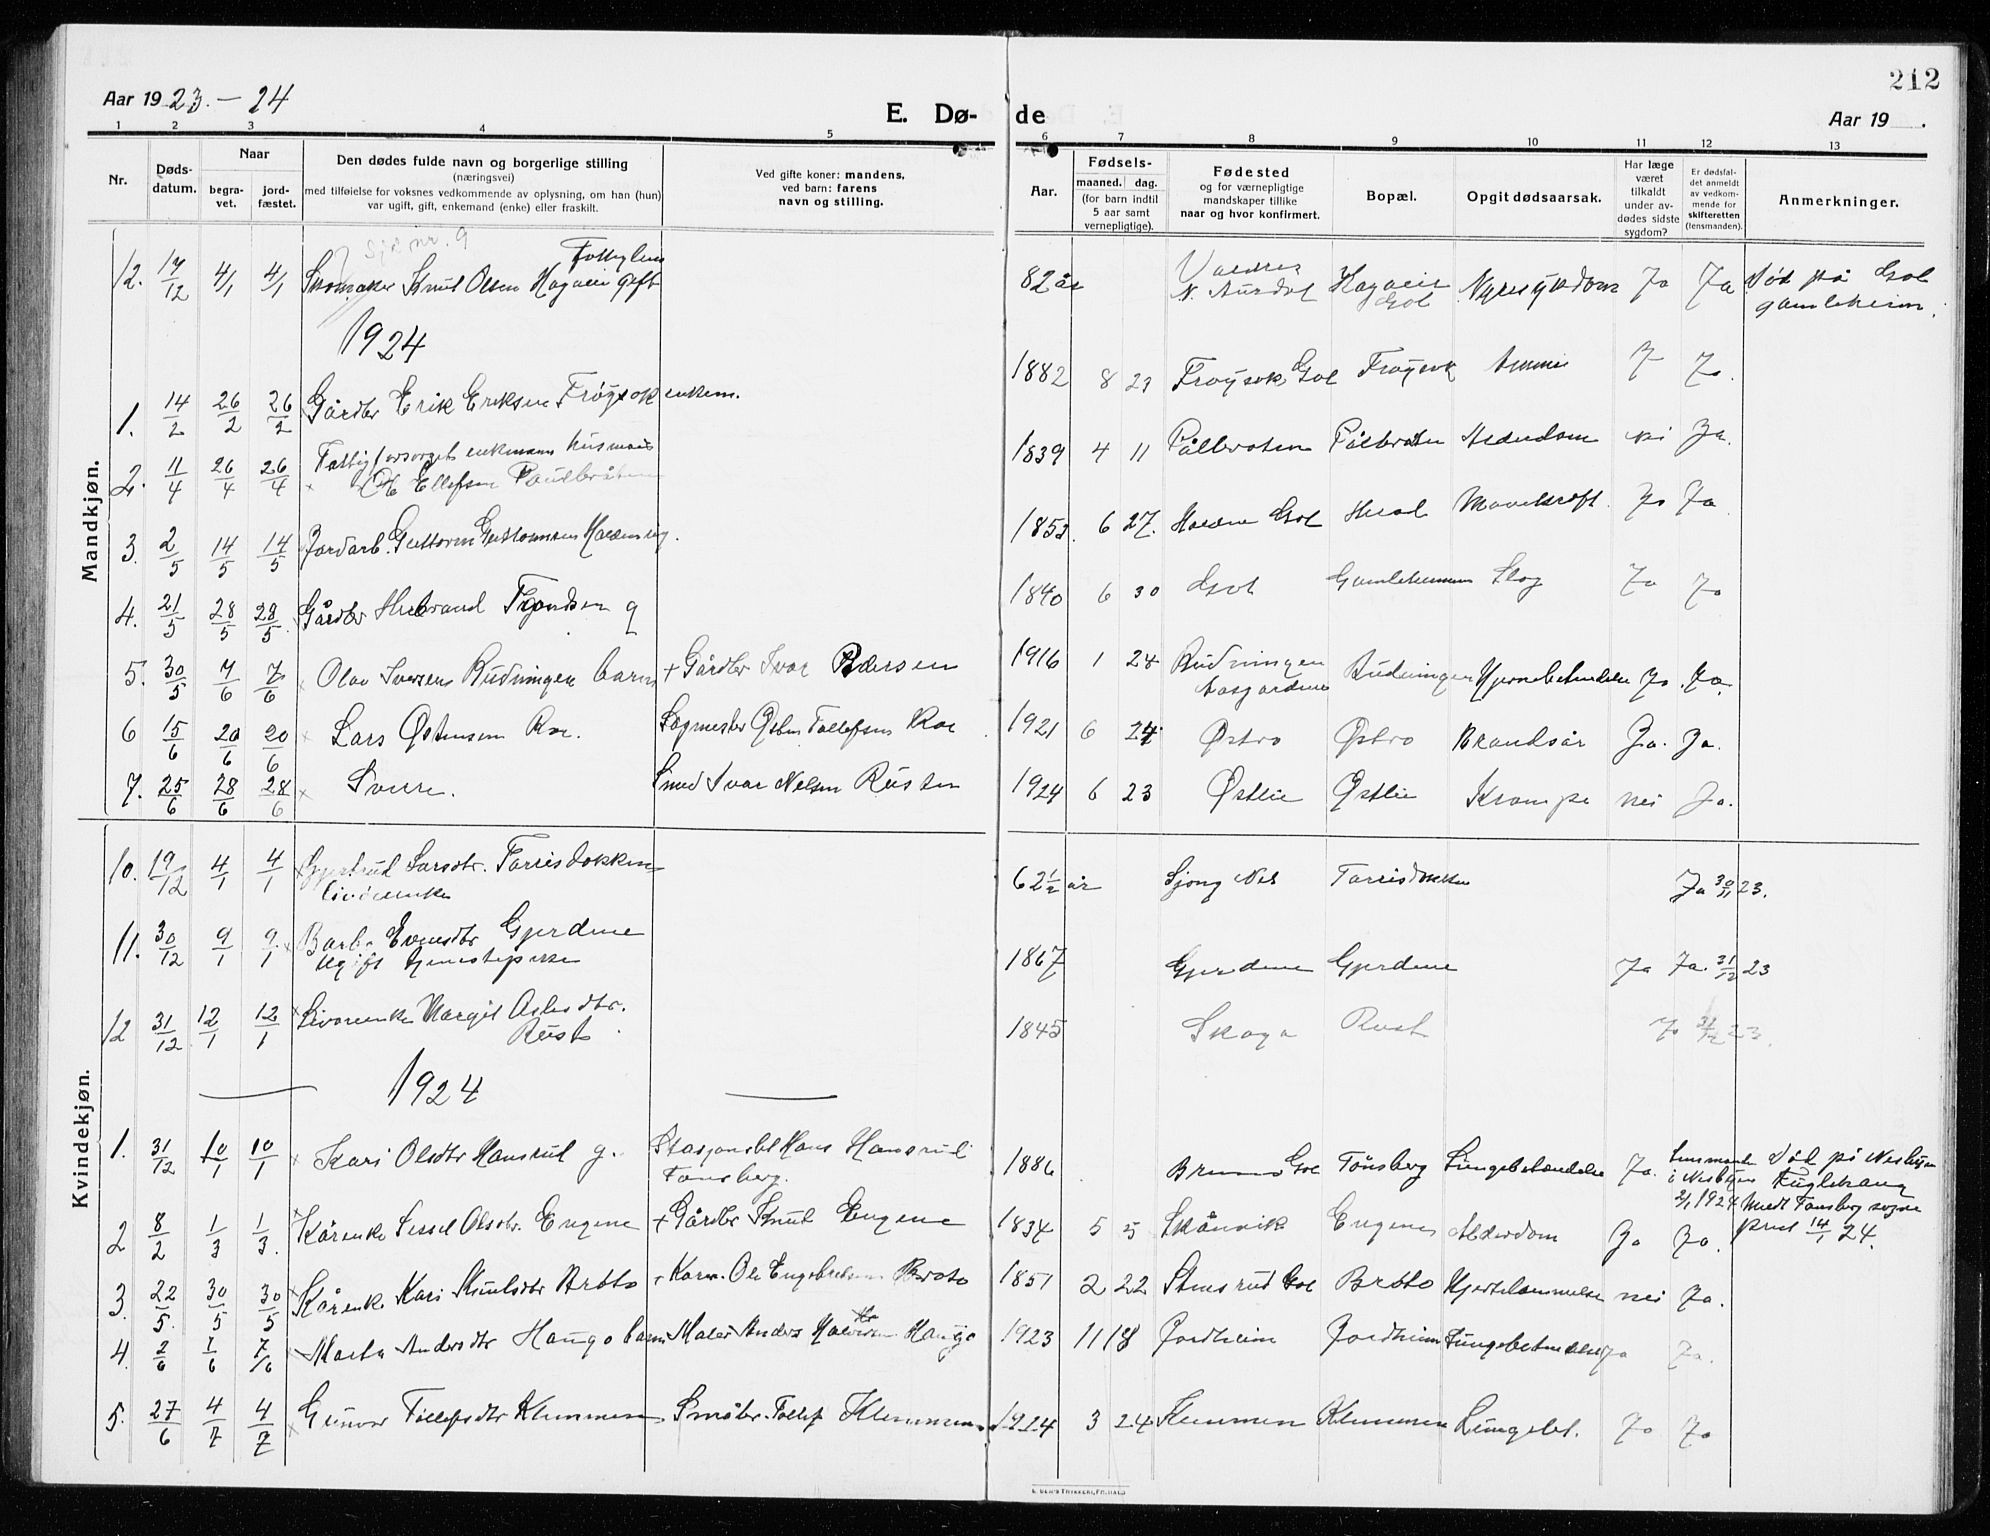 212
Aar 19 23. – 24
E. Dø- de
Aar 19 .
1 2 3 4 5 6 7 8 9 10 11 12 13
Nr.
Døds-
datum.
Naar
begra-
vet.
jord-
fæstet.
Den dødes fulde navn og borgerlige stilling
(næringsvei)
med tilføielse for voksnes vedkommende av oplysning, om han (hun)
var ugift, gift, enkemand (enke) eller fraskilt.
Ved gifte koner: mandens,
ved barn: farens
navn og stilling.
Aar.
Fødsels-
maaned. dag.
(for barn indtil
5 aar samt
vernepligtige).
Fødested
og for værnepligtige
mandskaper tillike
naar og hvor konfirmert.
Bopæl.
Opgit dødsaarsak.
Har læge
været
tilkaldt
under av-
dødes sidste
sygdom?
Er dødsfal-
det anmeldt
av vedkom-
mende for
skifteretten
(lensmanden).
Anmerkninger.
Mandkjøn.
nr. 9
12. 17/12 4/1 4/1 Skomaker Knut Olsen Hagaeie gift 82 år Valdres Hagaeie Nyresykdom Ja Ja Død på Gol
N. Aurdal Gol gamleheim.
1924
1. 14/2 26/2 26/2 Gårdbr Erik Eriksen Frøysok enkem. 1882 8 23 Frøysok Gol Frøysok J Ja.
2. 11/4 26/4 26/4 Fattigforsørget enkemann husmann 1839 4 11 Pålbråten Pålbråten Alderdom nei Ja.
Ellefsen Paulbråten
3. 2/5 14/5 14/5 Jordarb. Guttorm Guttormsen 1853 6 27. Gol Mavekræft Ja Ja
4. 21/5 28/5 28/5 Gårdbr Hilbrand Trondsen g 1840 6 30 Gol Gamleheimen Slag Ja Ja
5. 30/5 7/6 7/6 Olav Iversen Rudningen barn + Gårdbr Ivar Pedersen 1916 1 24 Rudningen Rudningen Hjernebetendelse Ja. Ja.
Aasgardene
6 15/6 20/6 20/6 Lars Østensen Roe. Sagmester Østen Tollefsen Roe 1921 6 24 Østro Østro Brandsår Ja. Ja.
7. 25/6 28/6 28/6 Sverre. Smed Ivar Nelsen Rusten 1924 6 23 Østlie Østlie Krampe nei Ja.
Kvindekjøn.
10. 19/12 4/1 4/1 Gjertrud Larsdtr. Torrisdokken 62 1/2 år Nes Ja 23.
11. 30/12 9/1 9/1 Barbo Evensdtr Gjerdene 1867 Gjerdene Gjerdene Ja Ja. 31/12 23
Ugift tjenestepike
12 31/12 12/1 12/1 Margit Aslesdtr. 1845 Skaga Rust Ja 31/12 23.
Rust
1924
1. 31/12 10/1 10/1 Kari Olsdtr Hansrud g. Hans Hansrud 1886 Gol Tønsberg Lungebetændelse Ja. Lensmanden Død på Nesbyen
Tønsberg. i Nesbyen Fuglehaug
2/1 1924 Medt Tønsberg sogne
prest 14/1 24.
2 8/2 1/3 1/3. Kårenke Sissel Olsdtr. Engene + Gårdbr Knut Engene 1834 5 5 Skånvik Engene Alderdom Ja Ja.
3. 22/5. 30/5 30/5 Kårenke Kari Knutsdtr Bråto + Ole Engebretsen Bråto 1851 2 22 Stensrud Gol Bråto Hjertelammelse nei Ja.
4. 2/6 7/6 7/6 Marta Andersdtr Haugo barn Maler Anders Halvorsen Haugo 1923 11 18 Jordheim Jordheim Lungebetændelse Ja Ja.
5. 27/6 4/7 4/7 Gunvor Tollefsdtr Klemmen Småbr. Tollef Klemmen. 1924 3 24 Klemmen Klemmen Lungebet. Ja Ja